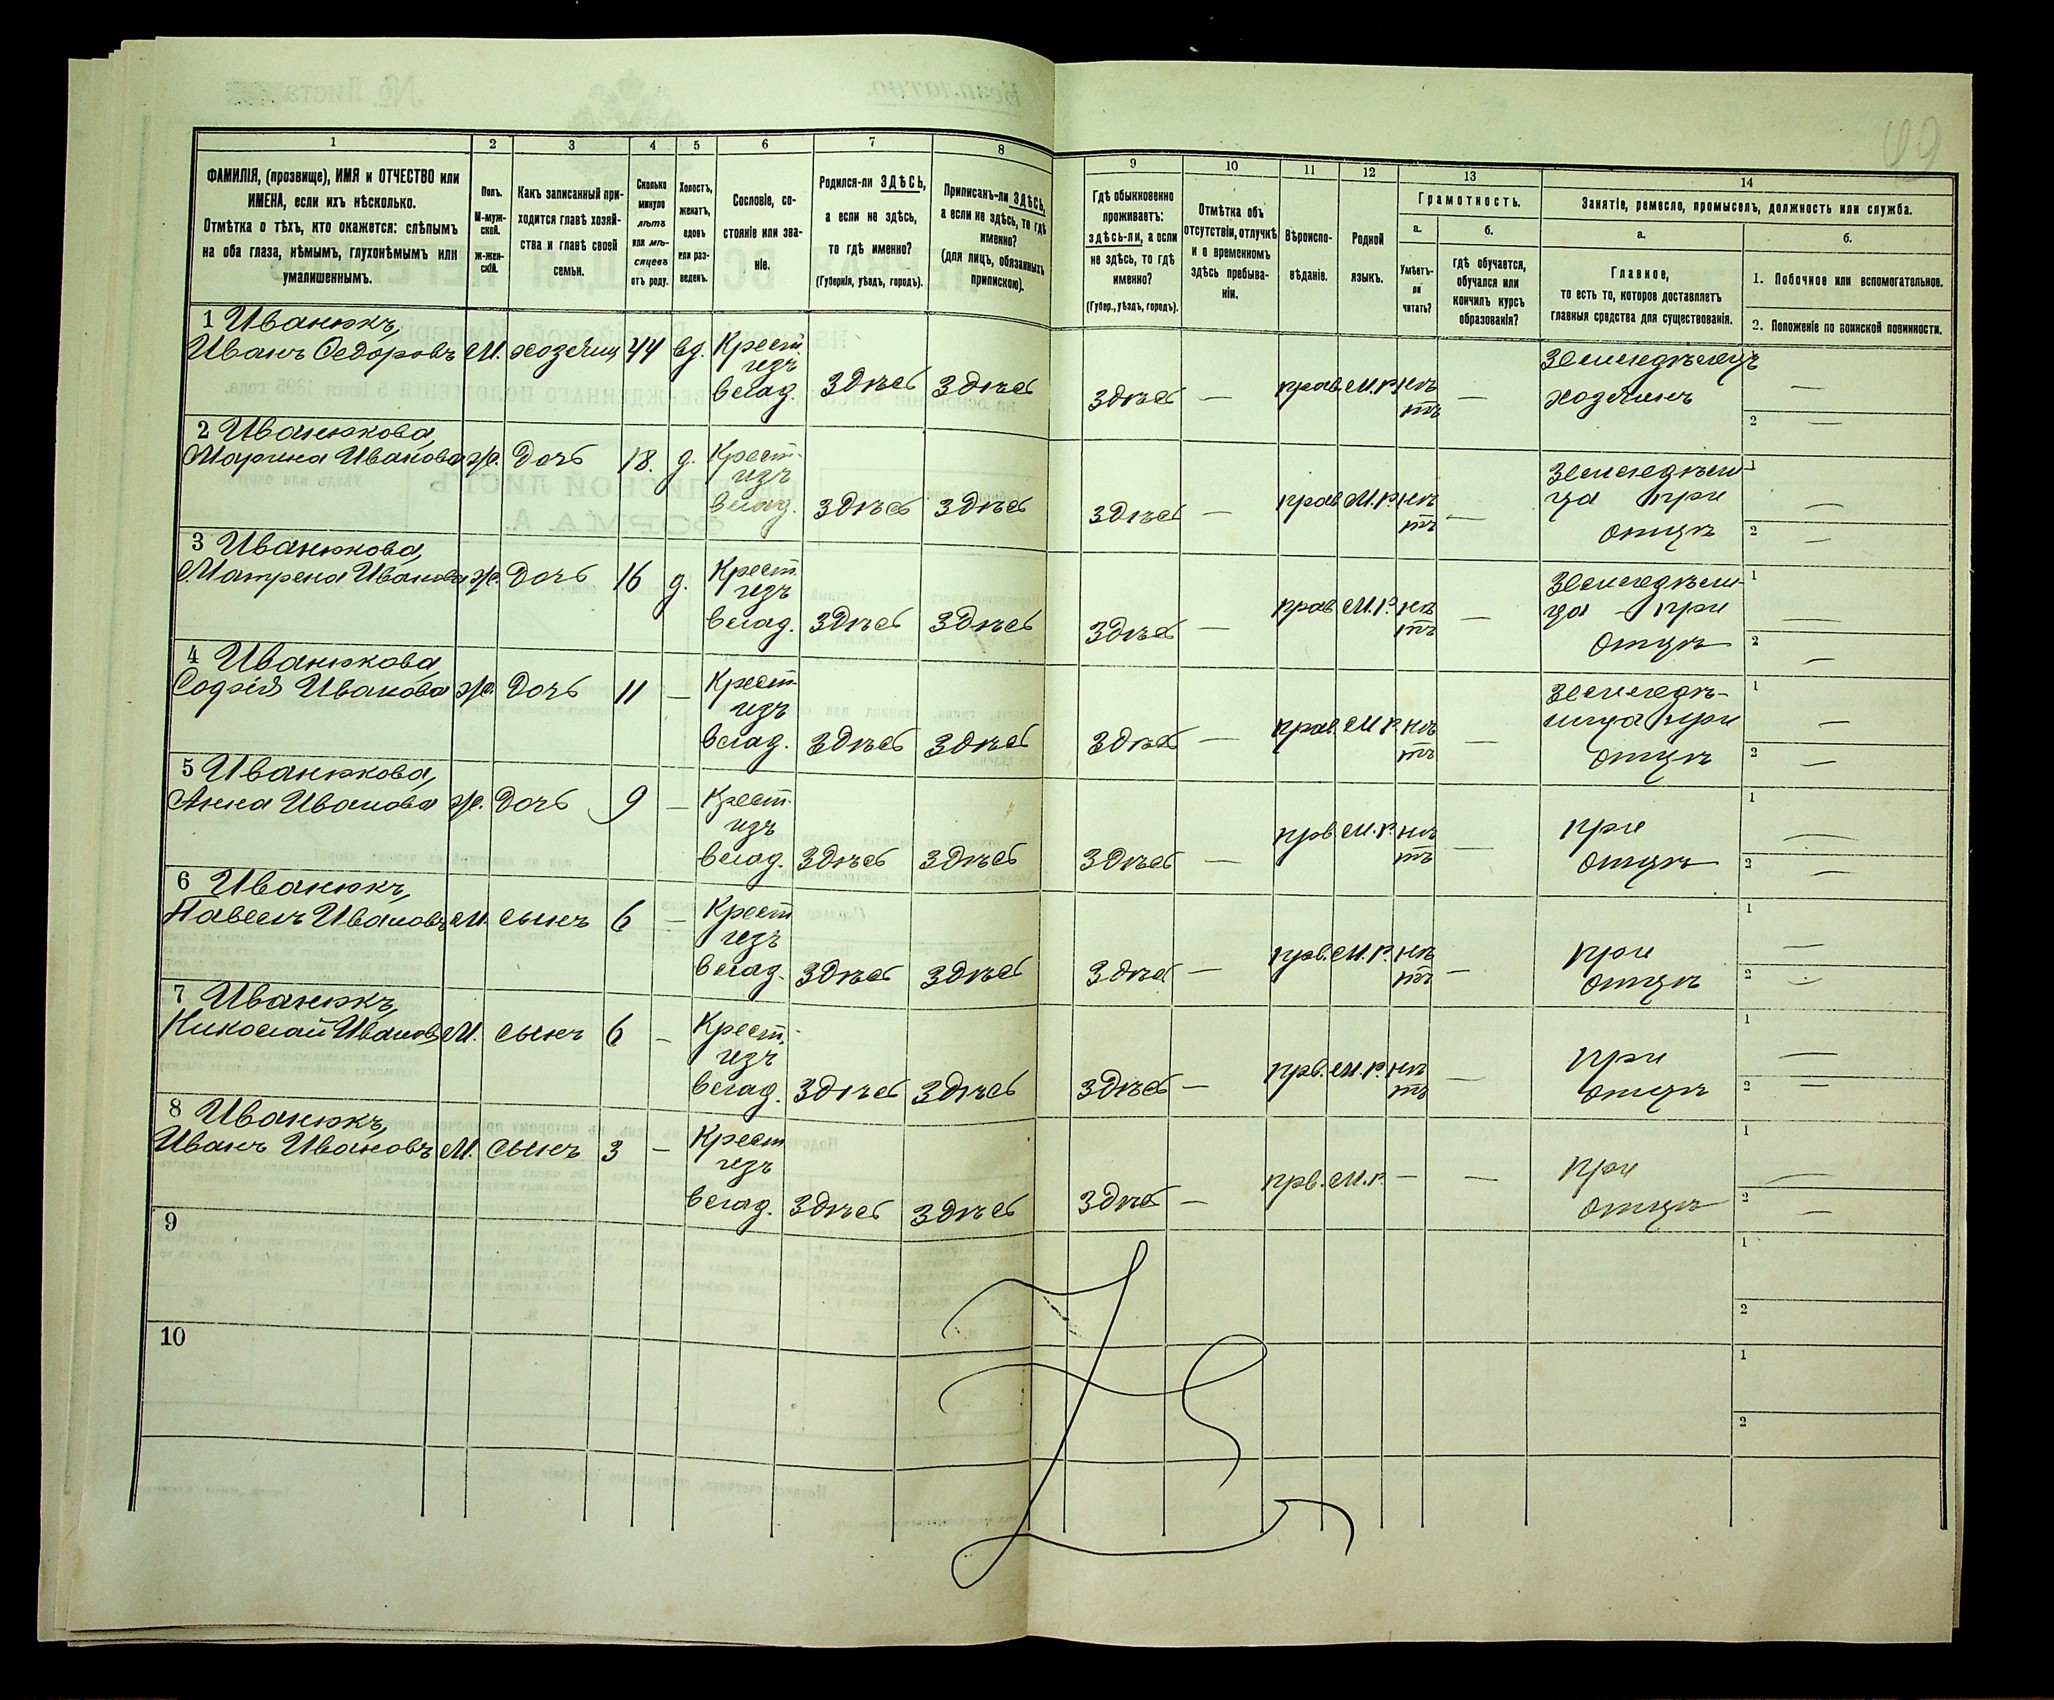 99
1 2 3 4 5 6 7 8 9 10 11 12 13 14
ФАМИЛІЯ, (прозвище), ИМЯ и ОТЧЕСТВО или
ИМЕНА, если ихъ нѣсколько.
Отмѣтка о тѣхъ, кто окажется: слѣпымъ
на оба глаза, нѣмымъ, глухонѣмымъ или
умалишеннымъ.
Полъ.
М-муж-
ской.
ж-жен-
скій.
Какъ записанный при-
ходится главѣ хозяй-
ства и главѣ своей
семьи.
Сколько
минуло
лѣтъ
или мѣ-
сяцевъ
отъ роду.
Холостъ,
женатъ,
вдовъ
или раз-
веденъ.
Сословіе, со-
стояніе или зва-
ніе.
Родился-ли ЗДѢСЬ,
а если не здѣсь,
то гдѣ именно?
(Губернія, уѣздъ, городъ).
Приписанъ-ли ЗДѢСЬ,
а если не здѣсь, то гдѣ
именно?
(для лицъ, обязанныхъ
припискою).
Гдѣ обыкновенно
проживаетъ:
здѣсь-ли, а если
не здѣсь, то гдѣ
именно?
(Губер., уѣздъ, городъ).
Отмѣтка объ
отсутствіи, отлучкѣ
и о временномъ
здѣсь пребыва-
ніи.
Вѣроиспо-
вѣданіе.
Родной
языкъ.
Грамотность.
а.
Умѣетъ-
ли
читать?
б.
гдѣ обучается,
обучался или
кончилъ курсъ
образованія?
Занятіе, ремесло, промыселъ, должность или служба.
а.
Главное,
то есть то, которое доставляетъ
главныя средства для существованія.
б.
1. Побочное или вспомогательное.
2. Положеніе по воинской повинности.
1 Иванюкъ,
Иванъ Ѳедоровъ М. хозяинъ 44 вд. Крест.
изъ
влад. здѣсь здѣсь здѣсь — прав. М.Р. нѣ
тъ — Земледѣлецъ
хозяинъ —
2 —
2 Иванюкова,
Марина Иванова ж. дочь 18. д. Крест.
изъ
влад. здѣсь здѣсь здѣсь — прав. М.Р. нѣ
тъ — Земледѣли- 1
ца при —
отцѣ 2 —
3 Иванюкова,
Матрена Иванова ж. дочь 16 д. Крест.
изъ
влад. здѣсь здѣсь здѣсь — прав. М.Р. нѣ
тъ — Земледѣли- 1
ца — при —
отцѣ 2 —
4 Иванюкова,
Софія Иванова ж. дочь 11 — Крест.
изъ
влад. здѣсь здѣсь здѣсь — прав. М.Р. нѣ
тъ — Земледѣ- 1
лица при —
отцѣ 2 —
5 Иванюкова,
Анна Иванова ж. дочь 9 — Крест.
изъ
влад. здѣсь здѣсь здѣсь — прв. М.Р. нѣ
тъ — при 1 —
отцѣ 2 —
6 Иванюкъ,
Павелъ Ивановъ М. сынъ 6 — Крест
изъ
влад. здѣсь здѣсь здѣсь — прв. М.Р. нѣ
тъ — при 1 —
отцѣ 2 —
7 Иванюкъ,
Николай Ивановъ М. сынъ 6 — Крест.
изъ
влад. здѣсь здѣсь здѣсь — прв. М.Р. нѣ
тъ — при 1 —
отцѣ 2 —
8 Иванюкъ,
Иванъ Ивановъ М. сынъ 3 — Крест
изъ
влад. здѣсь здѣсь здѣсь — прв. М.Р. — — при 1 —
отцѣ 2 —
9 1
2
10 1
2